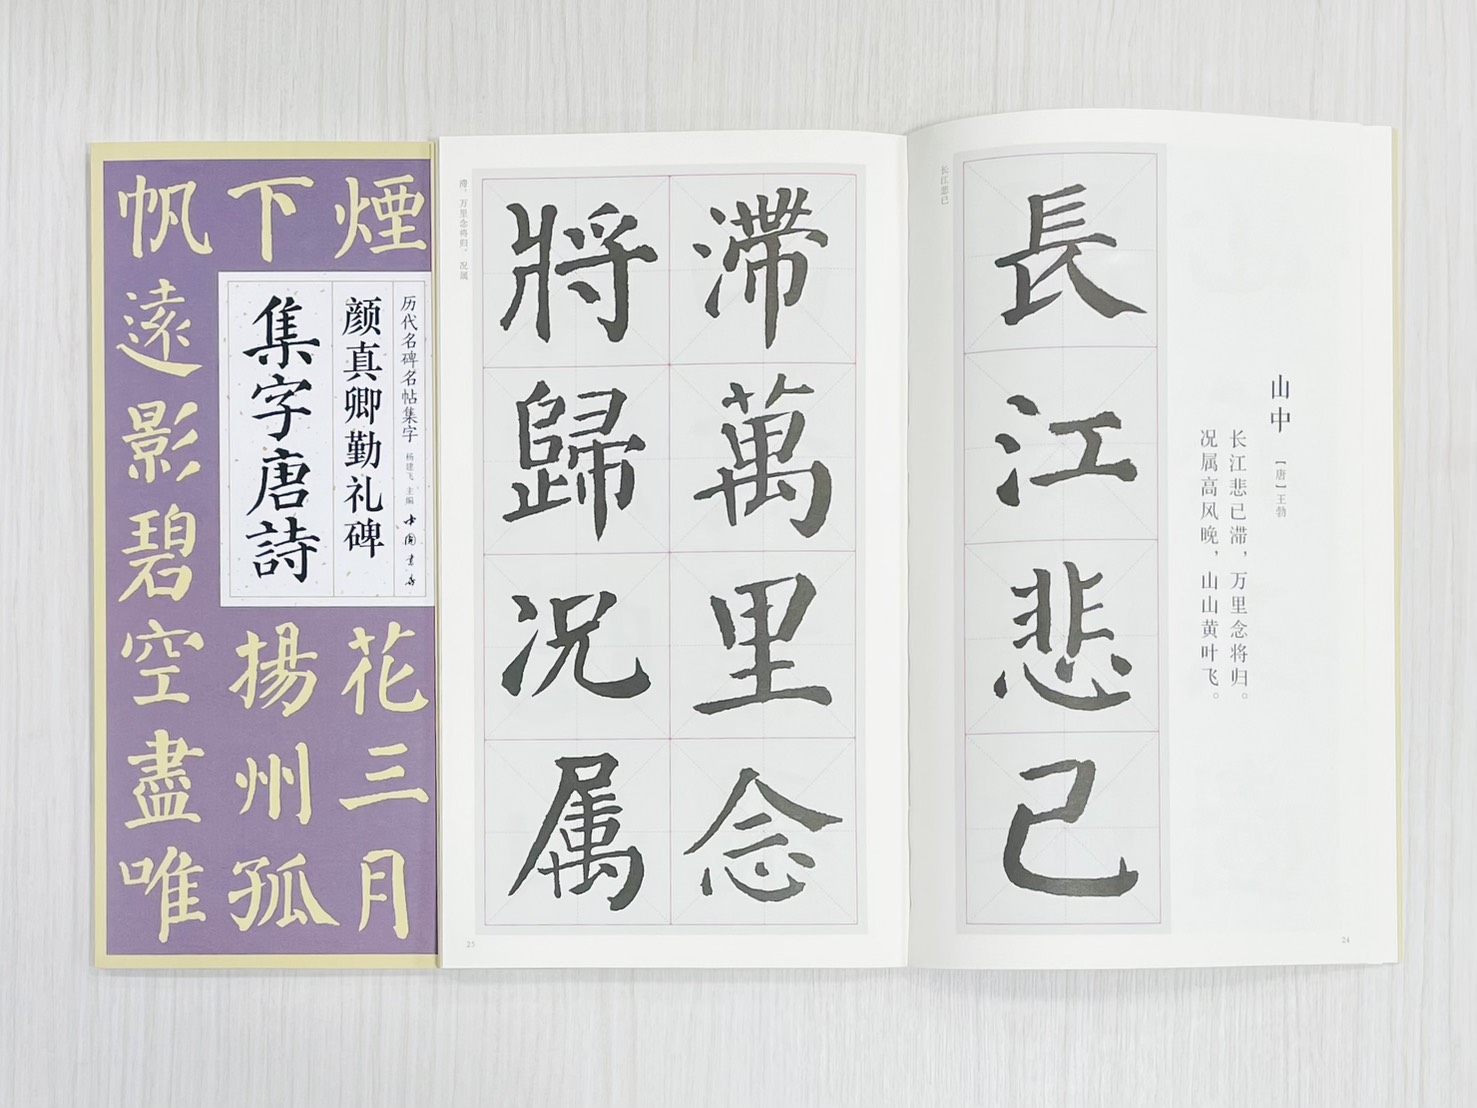 煙
花三月
下
揚州孤
帆遠影碧空盡唯
历代名碑名帖集字
杨建飞 主编
中国书店
颜真卿勤礼碑
集字唐詩
山中
【唐】王勃
长江悲已滞，万里念将归。
况属高风晚，山山黄叶飞。
長江悲已
长江悲已
24
滯萬里念
將歸况属
滞，万里念将归。况属
25